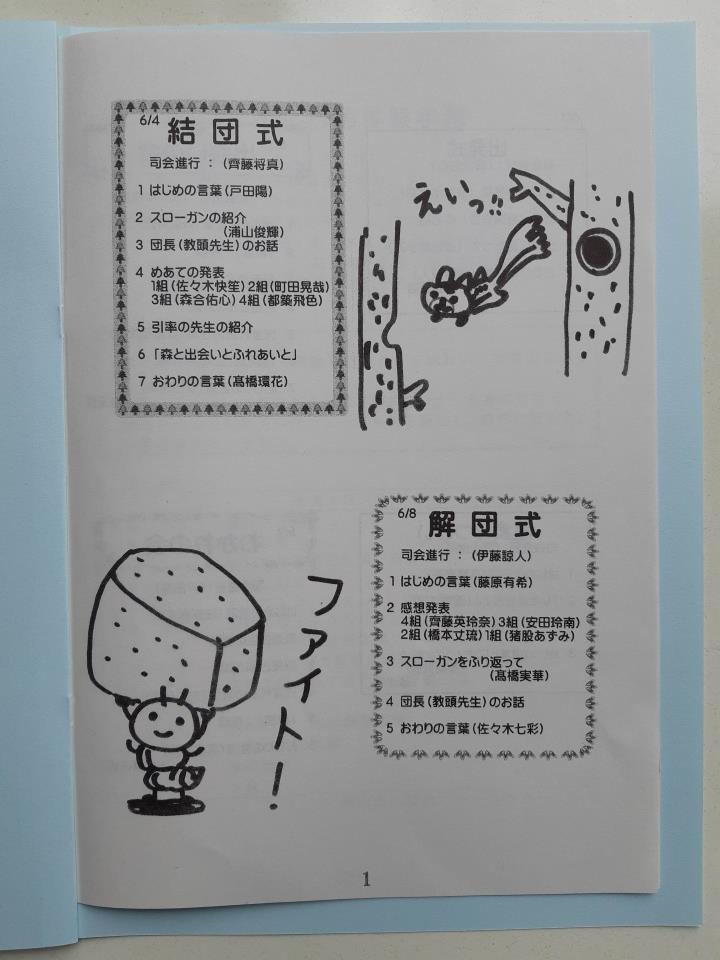 6/4
結団式
司会進行：（齊藤将真）
1 はじめの言葉（戸田陽）
2 スローガンの紹介
（浦山俊輝）
3 団長（教頭先生）のお話
4 めあての発表
1組（佐々木快笙）2組（町田晃哉）
3組（森合佑心）4組（都築飛色）
5 引率の先生の紹介
6 「森と出会いとふれあいと」
7 おわりの言葉（髙橋環花）
えいっ!!
ファイト！
6/8
解団式
司会進行：（伊藤諒人）
1 はじめの言葉（藤原有希）
2 感想発表
4組（齊藤英玲奈）3組（安田玲南）
2組（橋本丈琉）1組（猪股あずみ）
3 スローガンをふり返って
（髙橋実華）
4 団長（教頭先生）のお話
5 おわりの言葉（佐々木七彩）
1